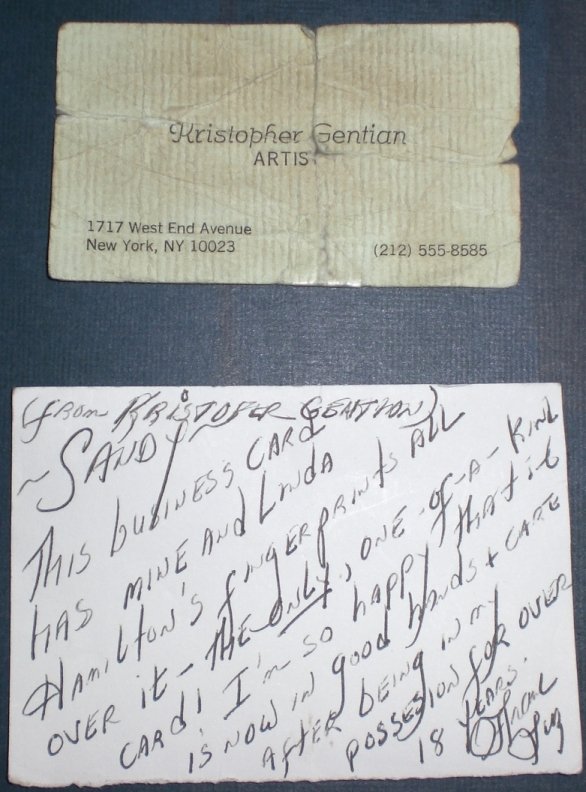 Kristopher Gentian
ARTIS
1717 West End Avenue
New York, NY 10023
(212) 555-8585
(FROM KRISTOFER GENTIAN)
~SANDY
THIS BUSINESS CARD
HAS MINE AND LINDA
HAMILTON'S FINGERPRINTS ALL
OVER IT - THE ONLY, ONE-OF-A-KIND
CARD! I'M SO HAPPY THAT IT
IS NOW IN GOOD HANDS & CARE
AFTER BEING IN MY
POSSESION FOR OVER
18 YEARS.